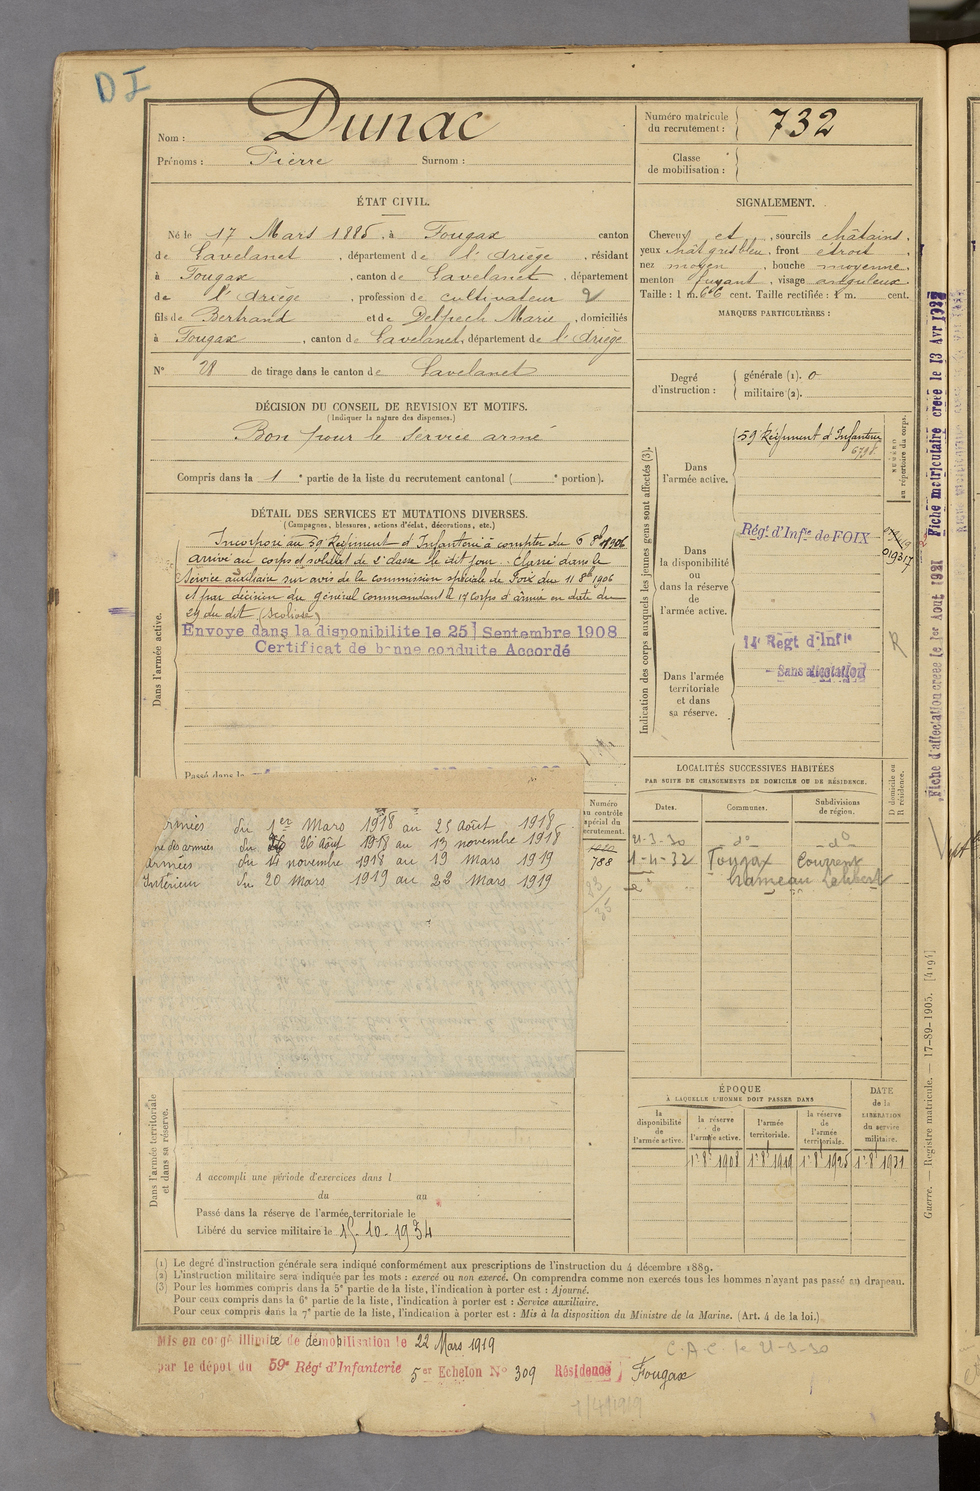 DI
Nom : Dunac
Prénoms : Pierre Surnom :
Numéro matricule du recrutement : 732
Classe de mobilisation :
ÉTAT CIVIL.
Né le 17 Mars 1885, à Fougax canton
de Lavelanet, département de l'Ariège, résidant
à Fougax, canton de Lavelanet, département
de l'Ariège, profession de cultivateur 2
fils de Bertrand et de Delpech Marie, domiciliés
à Fougax, canton de Lavelanet, département de l'Ariège
N° 28 de tirage dans le canton de Lavelanet
SIGNALEMENT.
Cheveux et, sourcils châtains,
yeux chât gris bleu, front étroit,
nez moyen, bouche moyenne,
menton fuyant, visage anguleux
Taille : 1 m. 66 cent. Taille rectifiée : 1 m. cent.
MARQUES PARTICULIÈRES :
Degré d'instruction : générale (1). 0
militaire (2).
DÉCISION DU CONSEIL DE REVISION ET MOTIFS.
(Indiquer la nature des dispenses.)
Bon pour le service armé
Compris dans la 1e partie de la liste du recrutement cantonal ( e portion).
DÉTAIL DES SERVICES ET MUTATIONS DIVERSES.
(Campagnes, blessures, actions d'éclat, décorations, etc.)
Dans l'armée active.
Incorporé au 59e Régiment d'Infanterie à compter du 6 8bre 1906
arrivé au corps et soldat de 2e classe le dit jour. Classé dans le
Service auxiliaire sur avis de la commission spéciale de Foix du 11 8bre 1906
et par décision du général commandant le 17e corps d'armée en date du
29 du dit (Scoliose)
Envoyé dans la disponibilité le 25 Septembre 1908
Certificat de bonne conduite Accordé
Passé dans la
armées du 1er Mars 1918 au 25 Août 1918
ne des armées du 26 août 1918 au 13 novembre 1918
armées du 14 novembre 1918 au 19 Mars 1919
Intérieur du 20 Mars 1919 au 22 Mars 1919
Dans l'armée territoriale et dans sa réserve.
A accompli une période d'exercices dans l
du au
Passé dans la réserve de l'armée territoriale le
Libéré du service militaire le 15-10-1934
Indication des corps auxquels les jeunes gens sont affectés (3).
NUMÉRO au répertoire du corps.
Dans l'armée active.
59e Régiment d'Infanterie
6798
Dans la disponibilité ou dans la réserve de l'armée active.
Régt d'Infie de FOIX
019317
Dans l'armée territoriale et dans sa réserve.
14e Régt d'Infie
Sans affectation
R
Numéro au contrôle spécial du recrutement.
788
LOCALITÉS SUCCESSIVES HABITÉES
PAR SUITE DE CHANGEMENTS DE DOMICILE OU DE RÉSIDENCE.
Dates. Communes. Subdivisions de région.
D domicile ou R résidence.
21-3-30 do do
1-4-32 Fougax
hameau
ÉPOQUE
À LAQUELLE L'HOMME DOIT PASSER DANS
la disponibilité de l'armée active.
la réserve de l'armée active.
l'armée territoriale.
la réserve de l'armée territoriale.
DATE de la LIBÉRATION du service militaire.
1er 8bre 1908 1er 8bre 1919 1er 8bre 1925 1er 8bre 1931
(1) Le degré d'instruction générale sera indiqué conformément aux prescriptions de l'instruction du 4 décembre 1889.
(2) L'instruction militaire sera indiquée par les mots : exercé ou non exercé. On comprendra comme non exercés tous les hommes n'ayant pas passé au drapeau.
(3) Pour les hommes compris dans la 5e partie de la liste, l'indication à porter est : Ajourné.
Pour ceux compris dans la 6e partie de la liste, l'indication à porter est : Service auxiliaire.
Pour ceux compris dans la 7e partie de la liste, l'indication à porter est : Mis à la disposition du Ministre de la Marine. (Art. 4 de la loi.)
Mis en congé illimité de démobilisation le 22 Mars 1919
par le dépôt du 59e Régt d'Infanterie 5er Echelon N° 309 Résidence Fougax
C.A.C. le 21-3-30
1/4/1919
Guerre. — Registre matricule. — 17-89-1905. [4194]
Fiche d'affectation créée le 1er Aout 1921
Fiche matriculaire créée le 13 Avr 1922